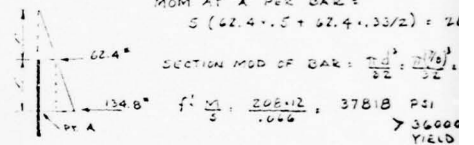 MOM AT A PER BAR =
5 (62.4 × .5 + 62.4 × .33/2) = 20
62.4#
SECTION MOD OF BAR = πd³/32 = π(7/8)³/32 =
f = M/S = 208×12/.066 = 37818 PSI
134.8#
> 36000
YIELD
PT. A